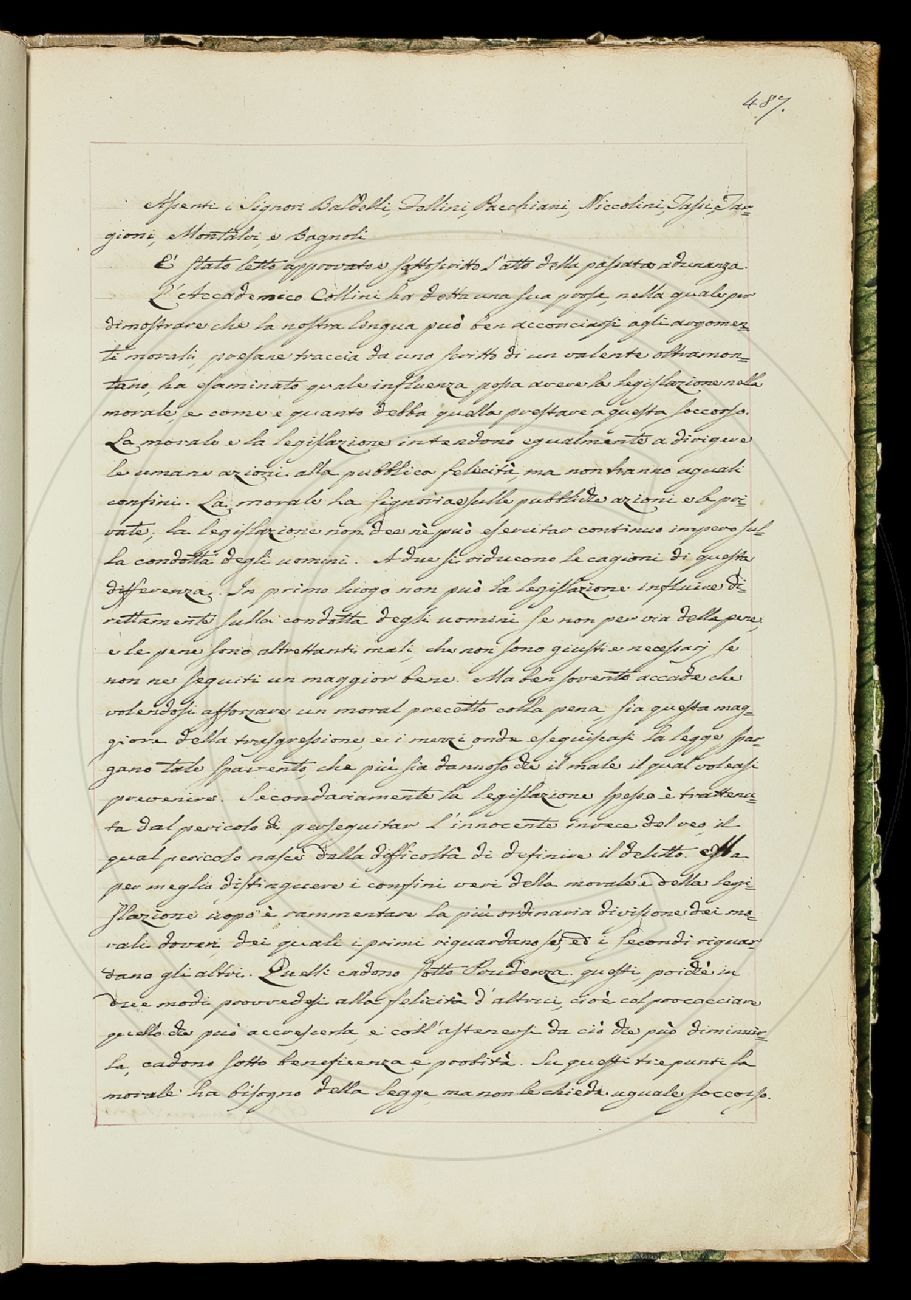 487.
Assenti i Signori Baldelli, Follini, Pacchiani, Niccolini, Tassi, Tar=
gioni, Montalvi, e Bagnoli
E' stato letto approvato e sottoscritto l'atto della passata adunanza.
L'Accademico Collini ha detta una sua prosa, nella quale per
dimostrare che la nostra lingua può ben acconciarsi agli argomen=
ti morali, presane traccia da uno scritto di un valente oltramon=
tano, ha esaminato quale influenza possa avere la legislazione nella
morale, e come e quanto debba quella prestare a questa soccorso.
La morale e la legislazione intendono egualmente a dirigere
le umane azioni alla pubblica felicità, ma non hanno uguali
confini. La morale ha signoria e sulle pubbliche azioni e le pri=
vate, la legislazione non dee nè può esercitar continuo impero sul=
la condotta degli uomini. A due si riducono le cagioni di questa
differenza. In primo luogo non può la legislazione influire di=
rettamente sulla condotta degli uomini se non per via delle pene,
e le pene sono altrettanti mali, che non sono giusti e necessarj se
non ne seguiti un maggior bene. Ma ben sovente accade che
volendosi afforzare un moral precetto colla pena, sia questa mag=
giore della trasgressione, e i mezzi onde eseguiscasi la legge spar=
gano tale spavento, che più sia dannoso che il male il qual voleasi
prevenire. Secondariamente la legislazione spesso è trattenu=
ta dal pericolo di perseguitar l'innocente invece del reo, il
qual pericolo nasce dalla difficoltà di definire il delitto. Ma
per meglio distinguere i confini veri della morale e della legi=
slazione uopo è rammentare la più ordinaria divisione dei mo=
rali doveri, dei quali i primi riguardano sè, ed i secondi riguar=
dano gli altri. Quelli cadono sotto Prudenza, questi, poichè in
due modi provvedesi alla felicità d'altrui, cioè col procacciare
quello che può accrescerla, e coll'astenersi da ciò che può diminuir=
la, cadono sotto beneficenza e probità. Su questi tre punti la
morale ha bisogno della legge, ma non le chiede uguale soccorso.